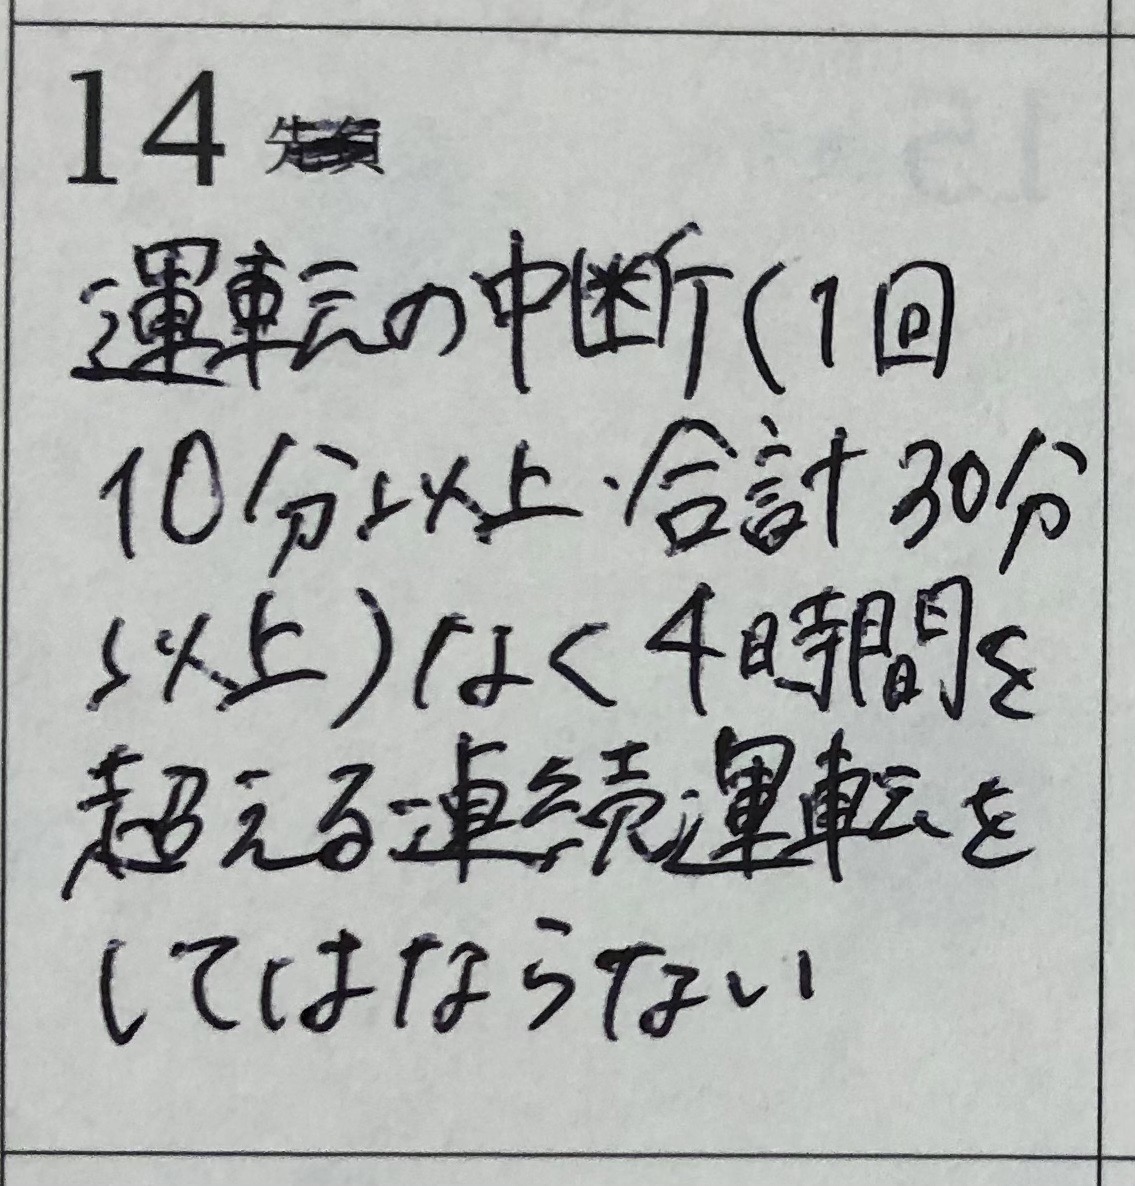 14
運転の中断(1回
10分以上・合計30分
以上)なく4時間を
超える連続運転を
してはならない